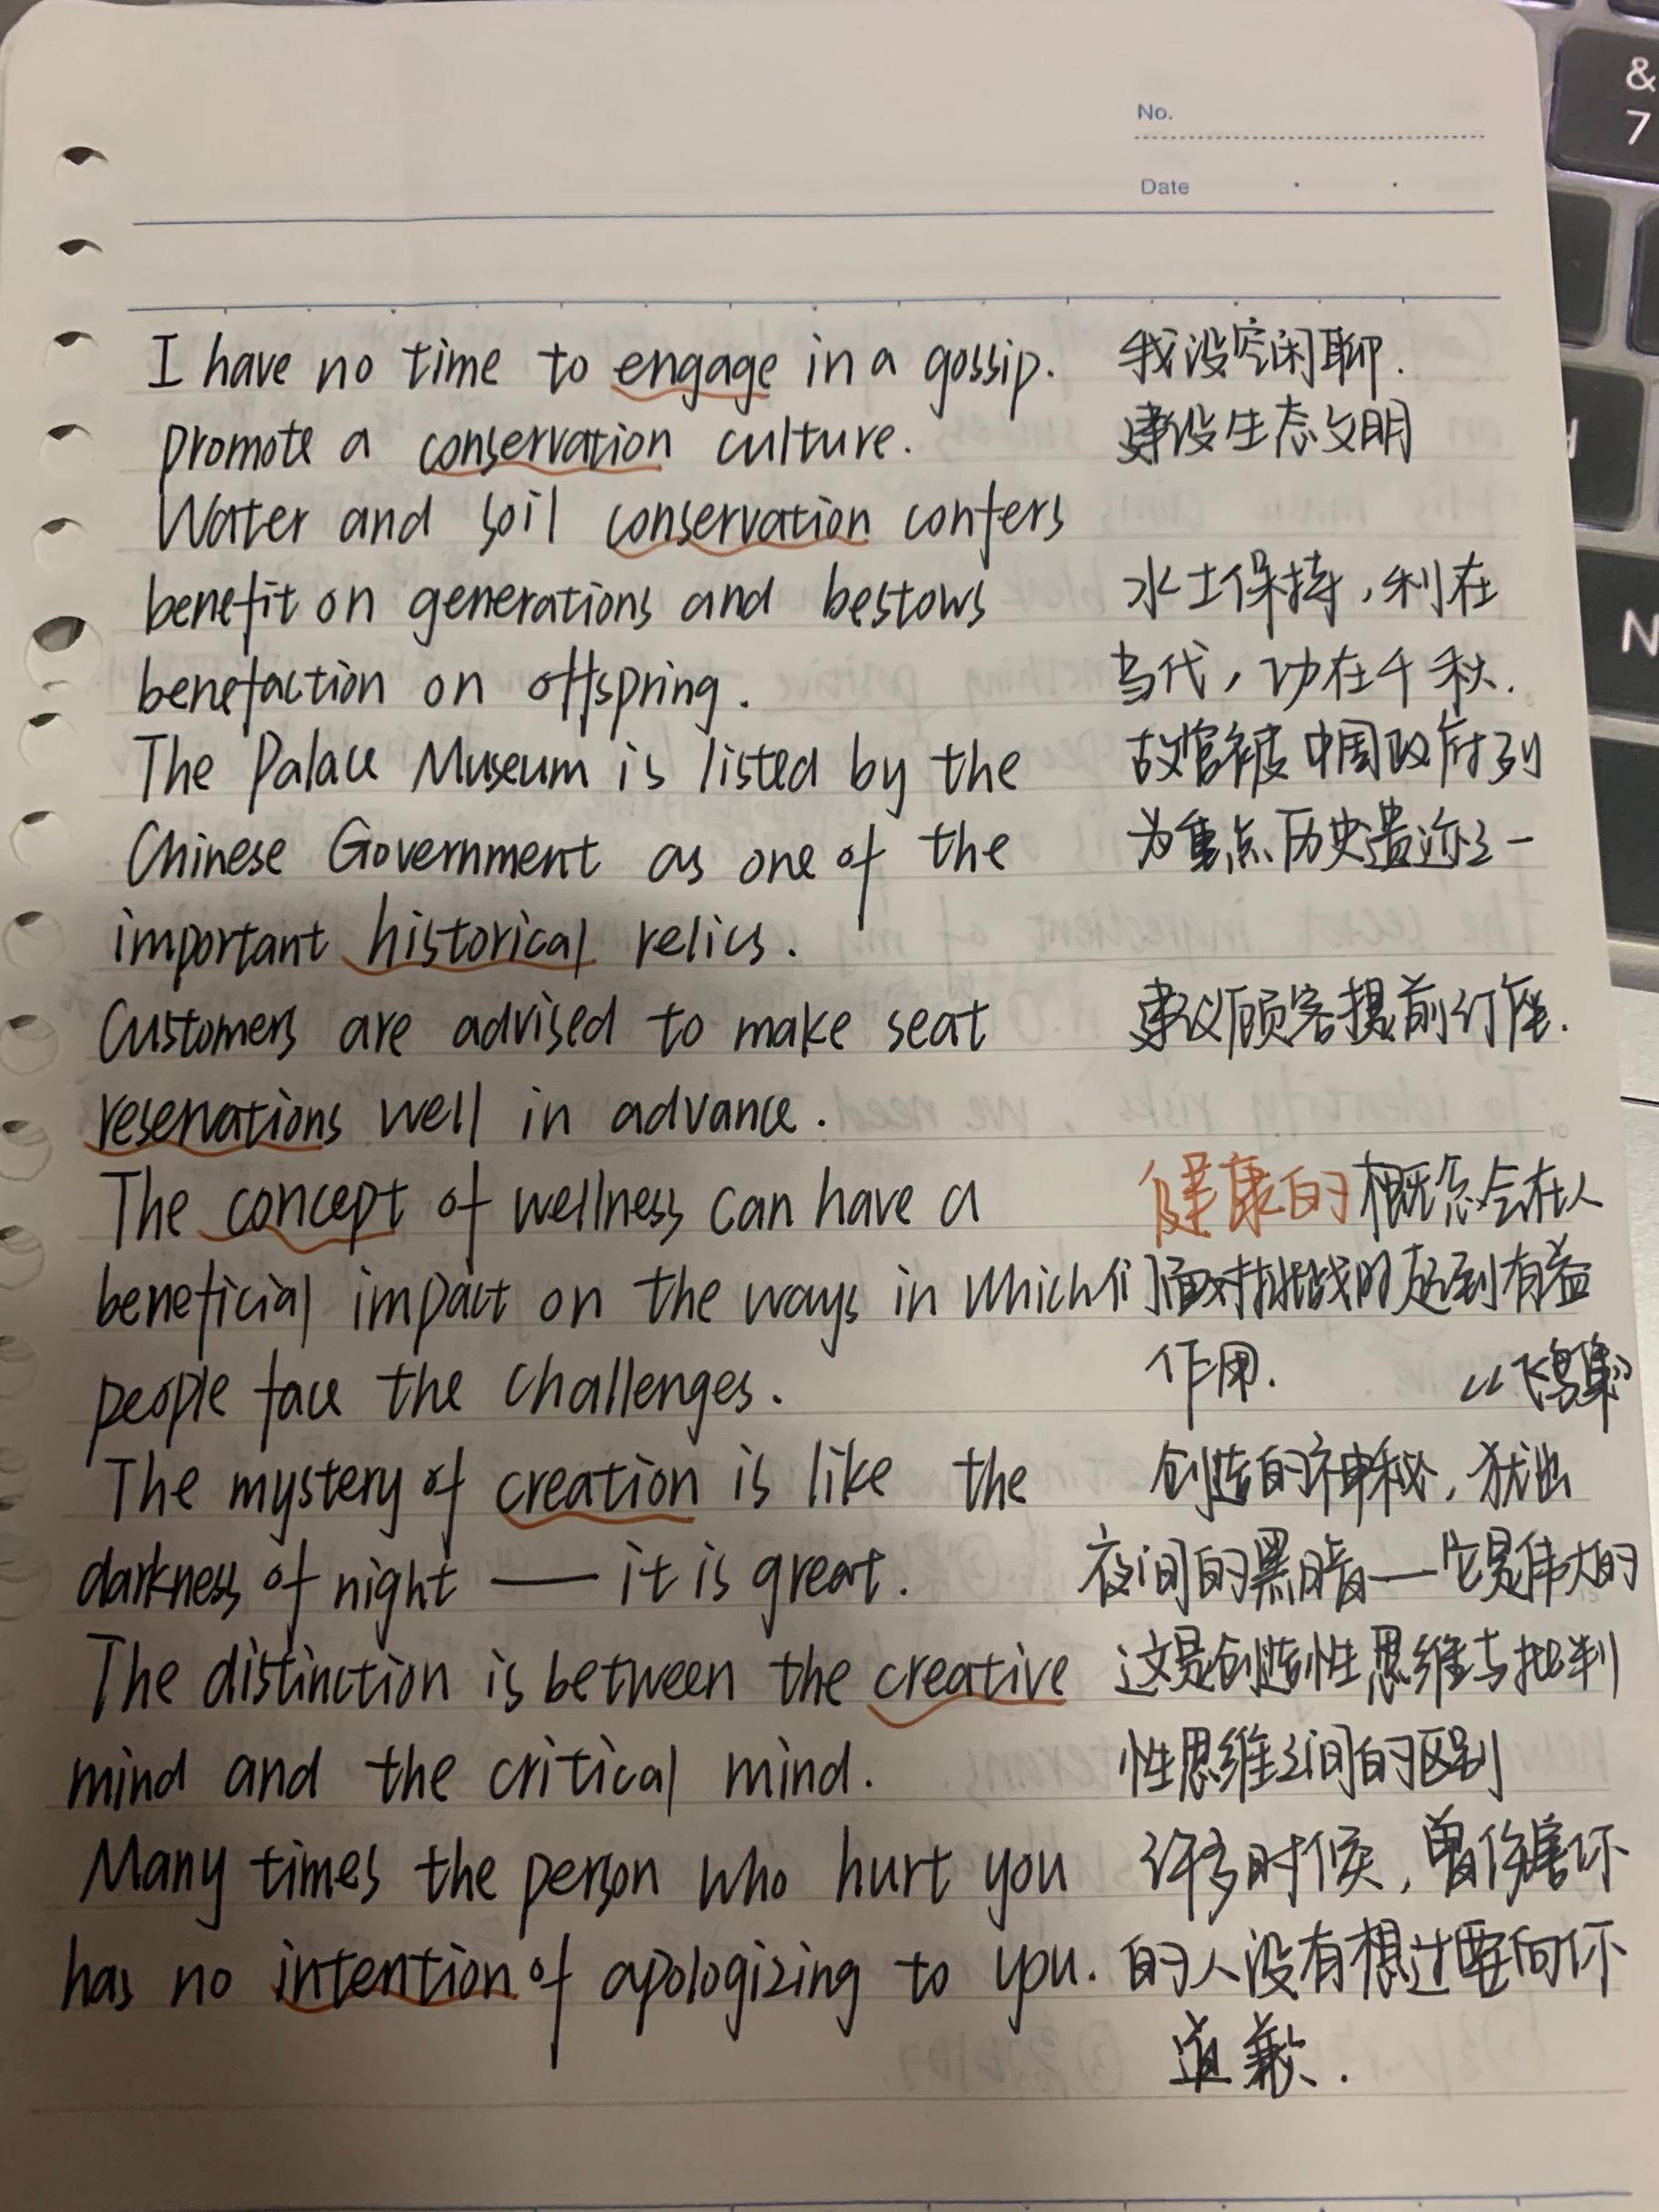 No.
Date
I have no time to engage in a gossip. 我没空闲聊.
promote a conservation culture. 建设生态文明
Water and soil conservation confers
benefit on generations and bestows 水土保持,利在
benefaction on offspring. 当代,功在千秋.
The Palace Museum is listed by the 故宫被中国政府列
Chinese Government as one of the 为重点历史遗迹之一
important historical relics.
Customers are advised to make seat 建议顾客提前订座.
reservations well in advance.
The concept of wellness can have a 健康的概念会在人
beneficial impact on the ways in which 们面对挑战时起到有益
people face the challenges. 作用. 《飞鸟集》
The mystery of creation is like the 创造的神秘,犹如
darkness of night — it is great. 夜间的黑暗—它是伟大的
The distinction is between the creative 这是创造性思维与批判
mind and the critical mind. 性思维之间的区别
Many times the person who hurt you 许多时候,曾伤害你
has no intention of apologizing to you. 的人没有想过要向你
道歉.
&
7
N